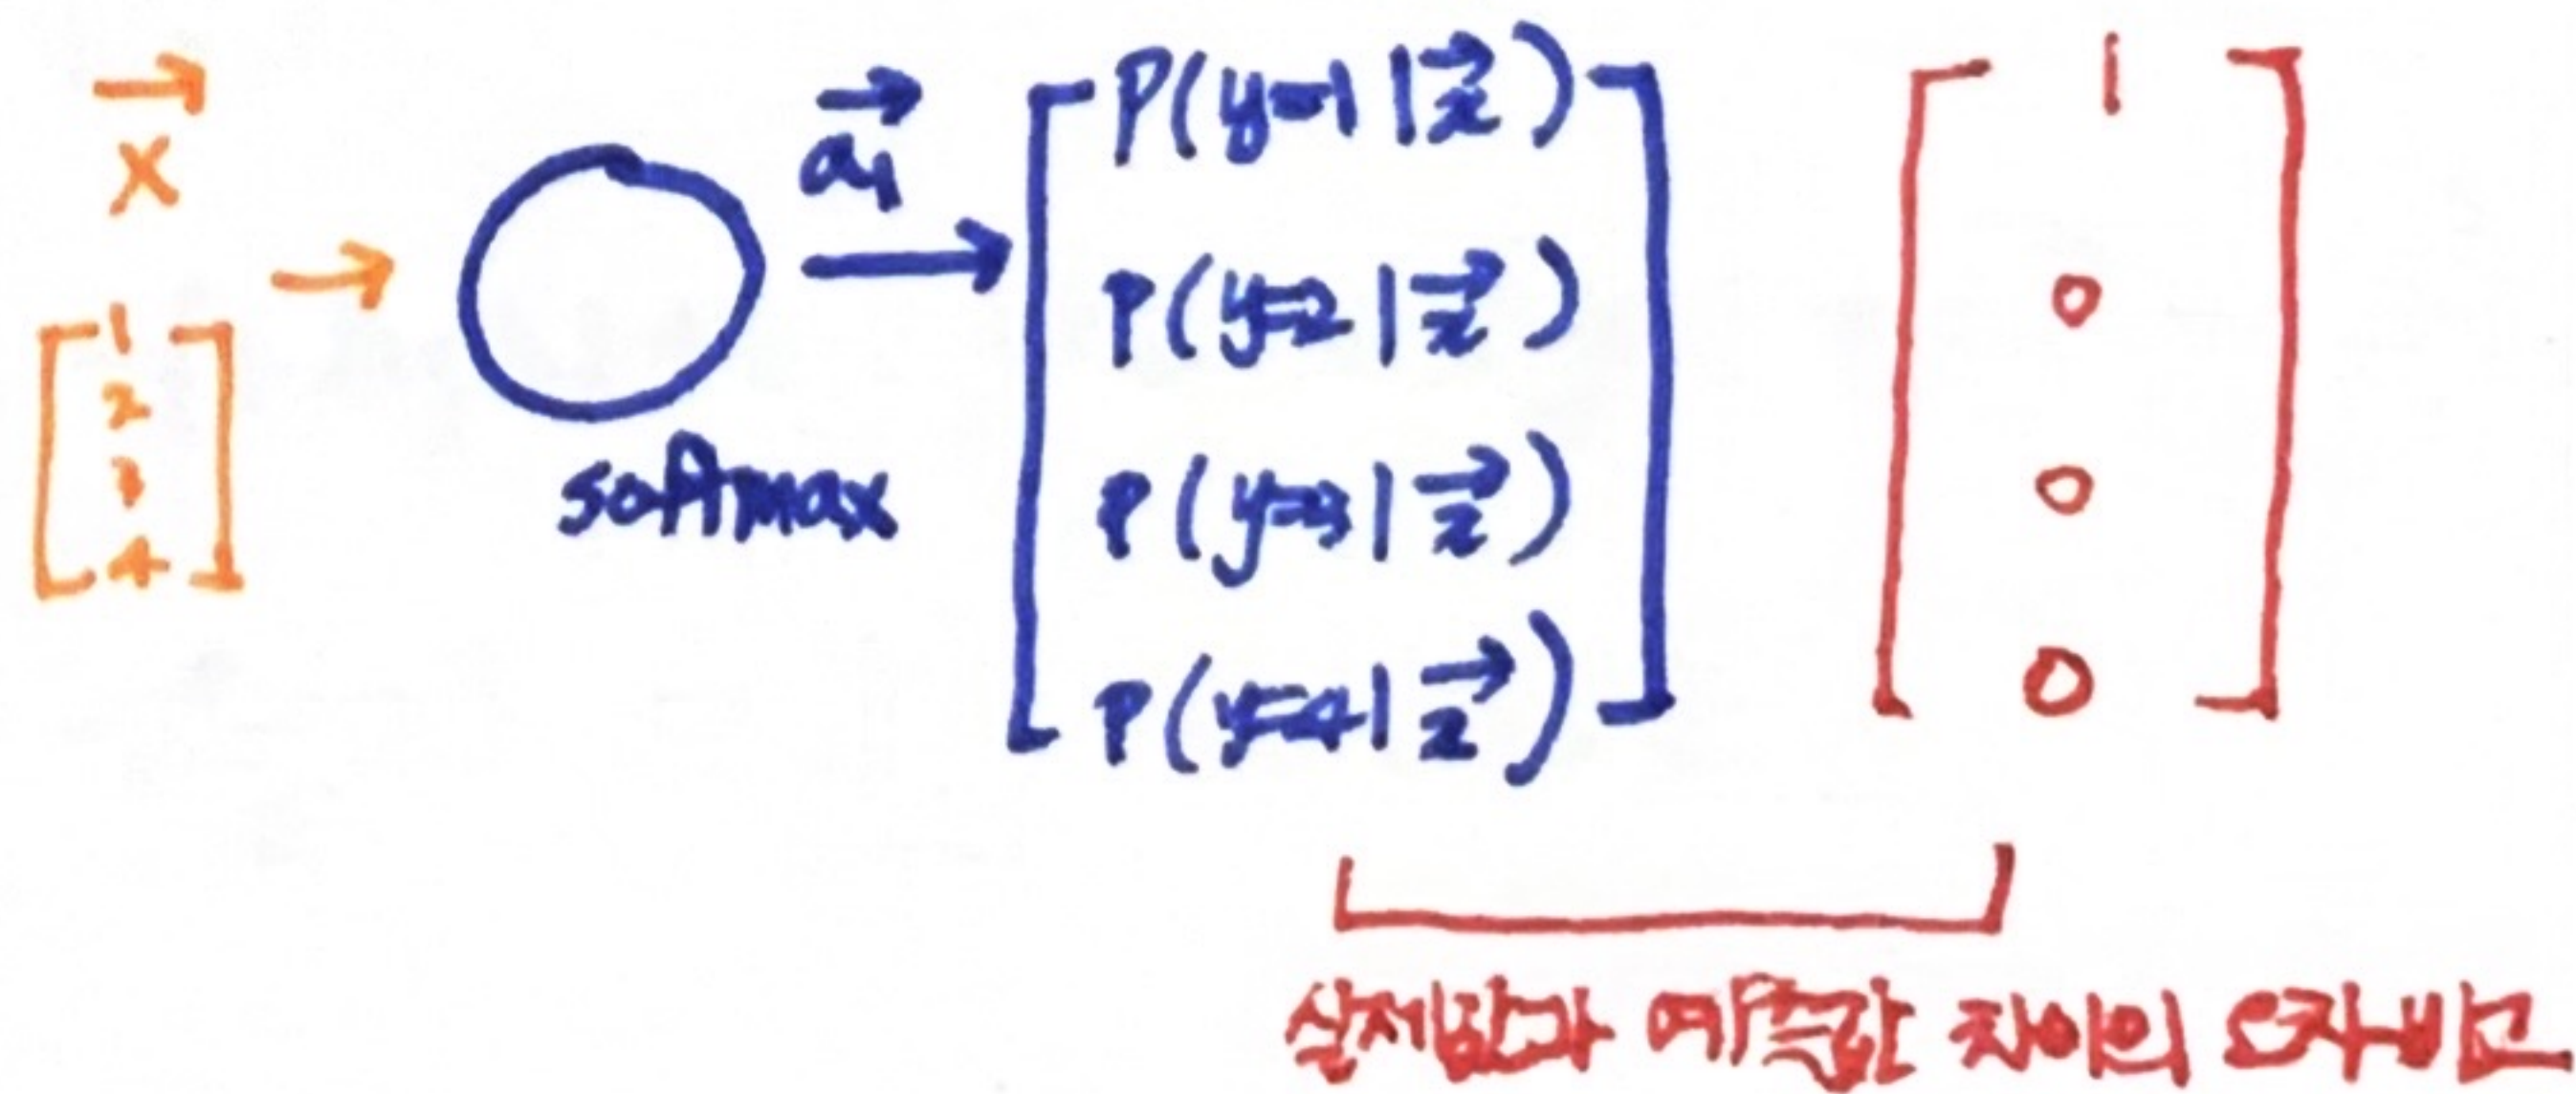 x
1
2
3
4
softmax
a₁
P(y=1|z)
P(y=2|z)
P(y=3|z)
P(y=4|z)
1
0
0
0
실제값과 예측값 차이의 오차비교